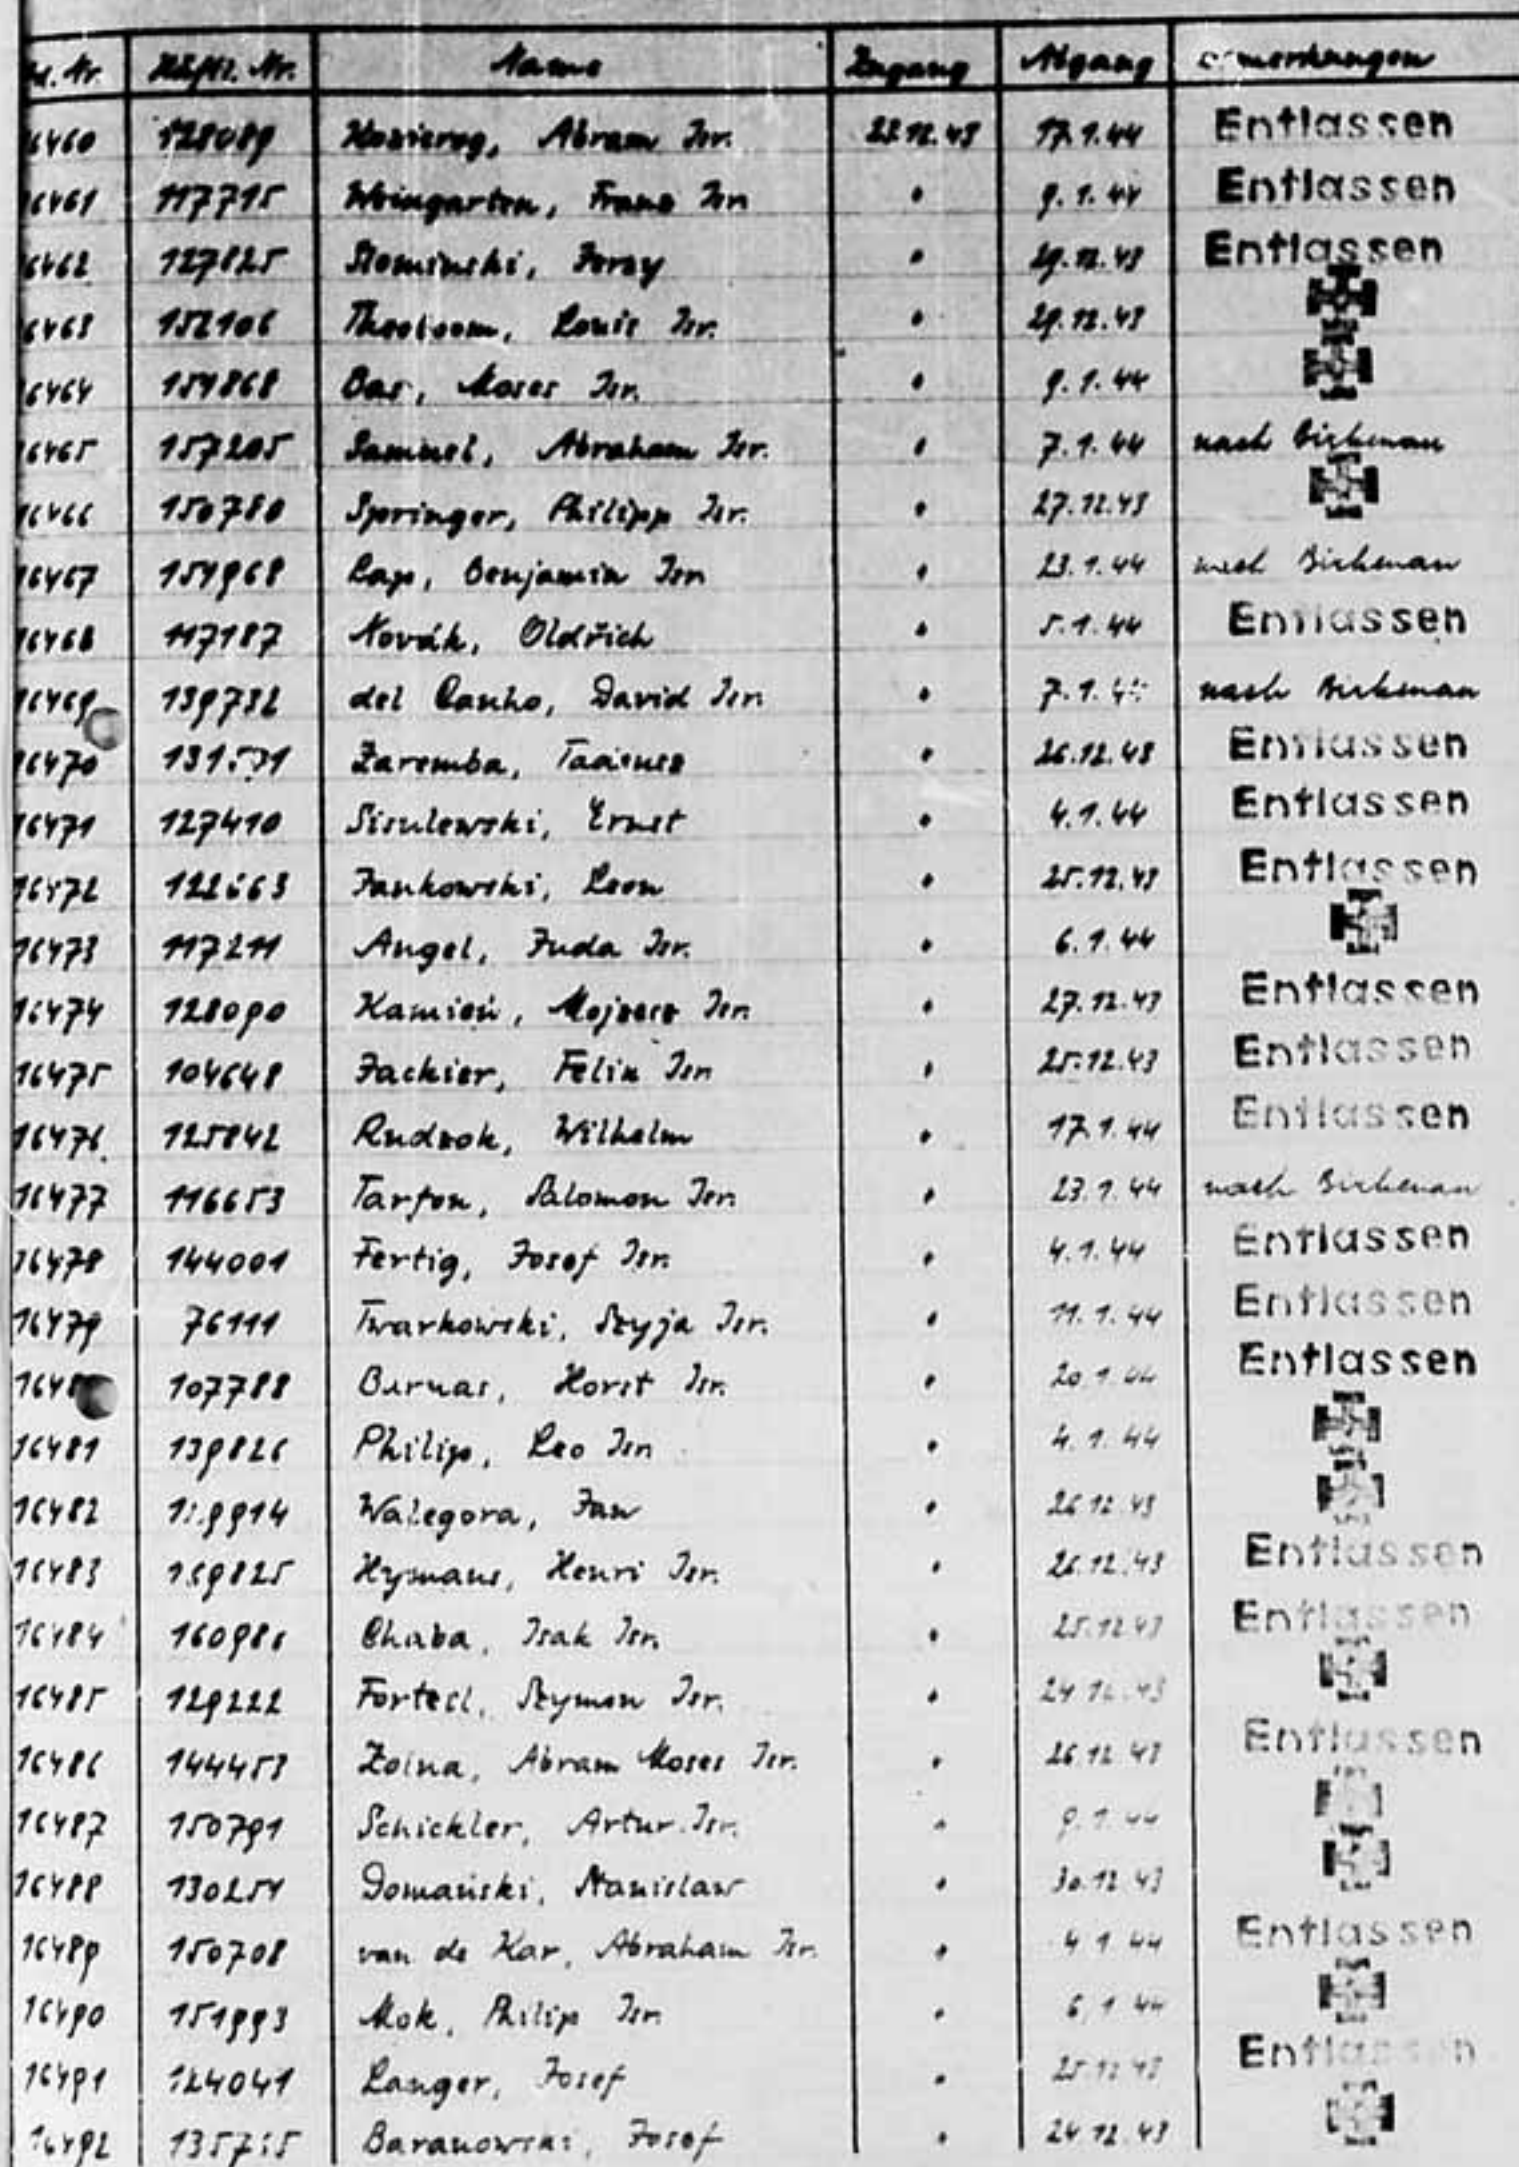 Häftl. Nr. Name Zugang Abgang Bemerkungen
128089 Abram Isr. 23.12.43 17.1.44 Entlassen
16461 117715 Weingarten, Franz Isr. " 9.1.44 Entlassen
16462 127825 Slominski, Jerzy " 29.12.43 Entlassen
16463 152106 Louis Isr. " 29.12.43
16464 Bas, Moses Isr. " 9.1.44
16465 157205 Sammel, Abraham Isr. " 7.1.44 nach Birkenau
16466 150780 Springer, Philipp Isr. " 27.12.43
16467 Lap, Benjamin Isr. " 23.1.44 nach Birkenau
16468 117187 Novák, Oldřich " 5.1.44 Entlassen
16469 139732 del Canho, David Isr. " 7.1.44 nach Birkenau
16470 Zaremba, " 26.12.43 Entlassen
16471 127410 Sisulewski, Ernst " 4.1.44 Entlassen
16472 Jankowski, Leon " 25.12.43 Entlassen
16473 117211 Angel, Juda Isr. " 6.1.44
16474 128090 Kamień, Mojzesz Isr. " 27.12.43 Entlassen
16475 104648 Jackier, Felix Isr. " 25.12.43 Entlassen
16476 125842 Rudzok, Wilhelm " 17.1.44 Entlassen
16477 116653 Tarfon, Salomon Isr. " 23.1.44 nach Birkenau
16478 144001 Fertig, Josef Isr. " 4.1.44 Entlassen
16479 76111 Twarkowski, Szyja Isr. " 11.1.44 Entlassen
107788 Horst Isr. " 20.1.44 Entlassen
16481 139826 Philips, Leo Isr. " 4.1.44
16482 Walegora, Jan " 26.12.43
16483 Hymans, Henri Isr. " 26.12.43 Entlassen
16484 Chaba, Isak Isr. " 25.12.43 Entlassen
16485 129222 Szymon Isr. " 24.12.43
16486 144453 Abram Moses Isr. " 26.12.43 Entlassen
16487 150791 Schickler, Artur Isr. " 9.1.44
16488 Domański, Stanislaw " 30.12.43
16489 150708 van de Kar, Abraham Isr. " 4.1.44 Entlassen
16490 151993 Mok, Philip Isr. " 6.1.44
16491 124041 Langer, Josef " 25.12.43 Entlassen
16492 Baranowski, Josef " 24.12.43